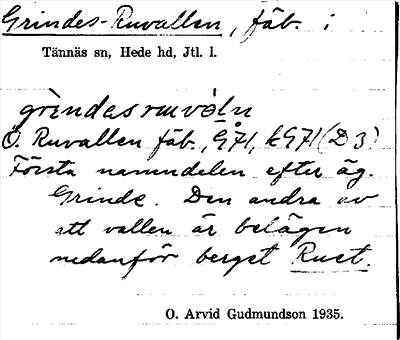 Grindes-Ruvallen, fäb. i
Tännäs sn, Hede hd, Jtl. l.
grindasruvàln
Ö. Ruvallen fäb., G71, kG71 (D3)
Första namndelen efter äg.
Grinde. Den andra av
att vallen är belägen
nedanför berget Ruet.
O. Arvid Gudmundson 1935.